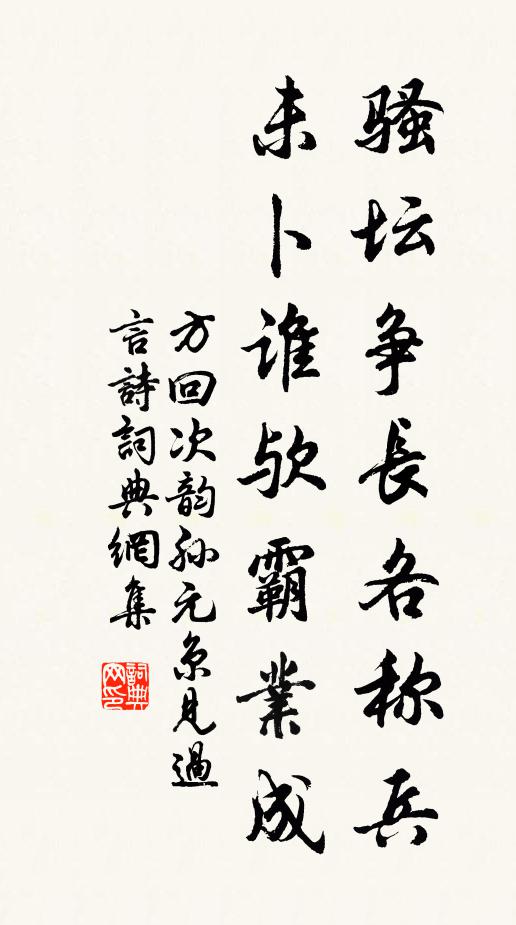 骚坛争長各称兵
未卜谁欤霸業成
方回次韵孙元京見過
言詩詞典網集
詞典网印